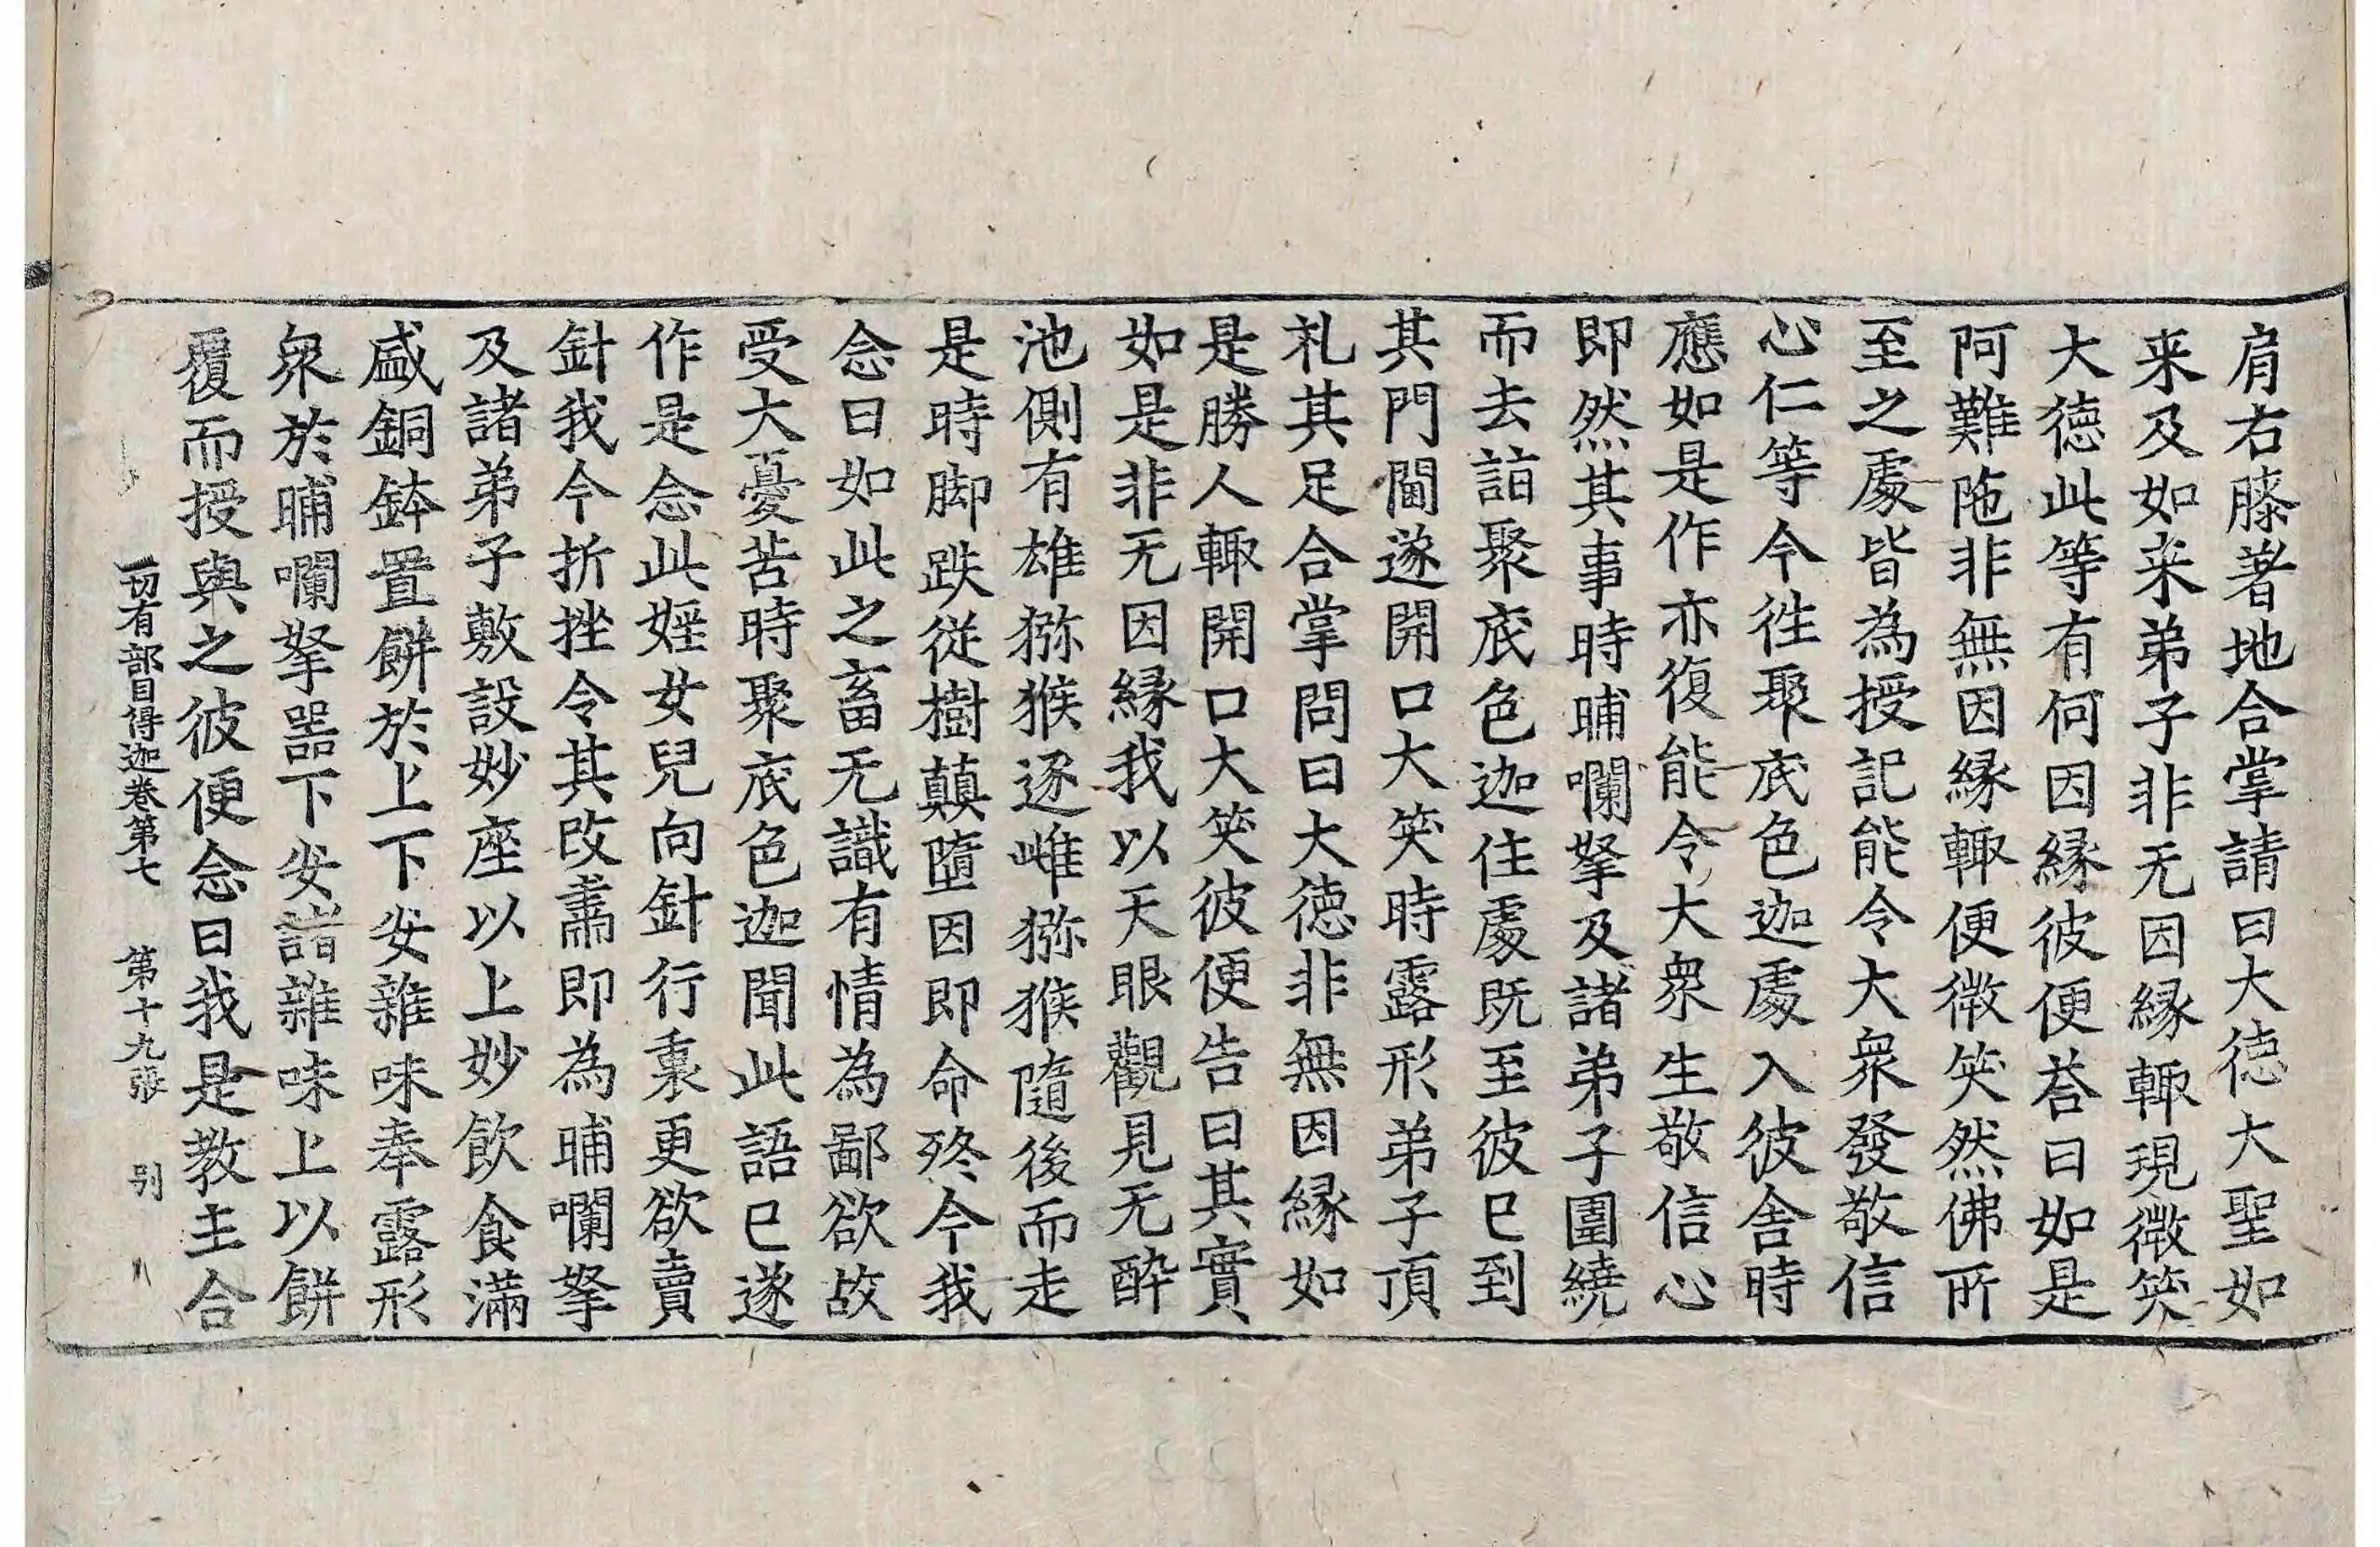 肩右膝著地合掌請曰大徳大聖如
来及如来弟子非无因縁輙現微笑
大徳此等有何因縁彼便荅曰如是
阿難陁非無因縁輙便微笑然佛所
至之處皆為授記能令大衆發敬信
心仁等今徃聚底色迦處入彼舍時
應如是作亦復能令大衆生敬信心
即然其事時晡囒拏及諸弟子圍繞
而去詣聚底色迦住處既至彼已到
其門閫遂開口大笑時露形弟子頂
礼其足合掌問曰大徳非無因縁如
是勝人輙開口大笑彼便告曰其實
如是非无因縁我以天眼觀見无酔
池側有雄猕猴逐雌猕猴隨後而走
是時脚跌従樹顛墮因即命終今我
念曰如此之畜无識有情為鄙欲故
受大憂苦時聚底色迦聞此語已遂
作是念此婬女兒向針行裏更欲賣
針我今折挫令其改肅即為晡囒拏
及諸弟子敷設妙座以上妙飲食滿
盛銅鉢置餅於上下安雜味奉露形
衆於晡囒拏噐下安諸雜味上以餅
覆而授與之彼便念曰我是教主合
一切有部目得迦卷第七　第十九張　别